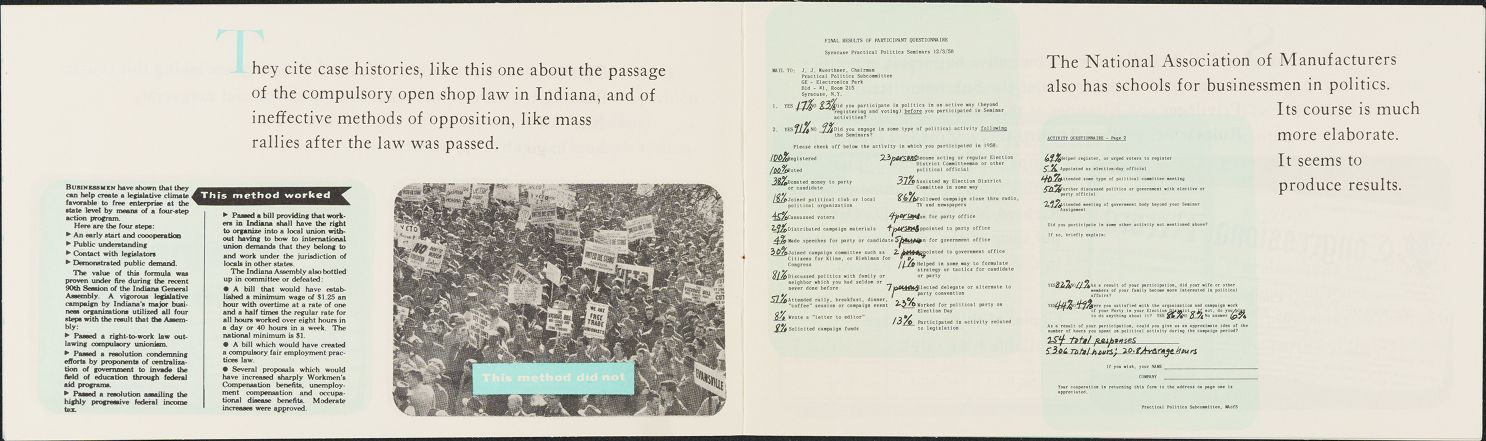 They cite case histories, like this one about the passage
of the compulsory open shop law in Indiana, and of
ineffective methods of opposition, like mass
rallies after the law was passed.
BUSINESSMEN have shown that they
can help create a legislative climate
favorable to free enterprise at the
state level by means of a four-step
action program.
Here are the four steps:
► An early start and coooperation
► Public understanding
► Contact with legislators
► Demonstrated public demand.
The value of this formula was
proven under fire during the recent
90th Session of the Indiana General
Assembly. A vigorous legislative
campaign by Indiana's major busi-
ness organizations utilized all four
steps with the result that the Assem-
bly:
► Passed a right-to-work law out-
lawing compulsory unionism.
► Passed a resolution condemning
efforts by proponents of centraliza-
tion of government to invade the
field of education through federal
aid programs.
► Passed a resolution assailing the
highly progressive federal income
tax.
This method worked
► Passed a bill providing that work-
ers in Indiana shall have the right
to organize into a local union with-
out having to bow to international
union demands that they belong to
and work under the jurisdiction of
locals in other states.
The Indiana Assembly also bottled
up in committee or defeated:
● A bill that would have estab-
lished a minimum wage of $1.25 an
hour with overtime at a rate of one
and a half times the regular rate for
all hours worked over eight hours in
a day or 40 hours in a week. The
national minimum is $1.
● A bill which would have created
a compulsory fair employment prac-
tices law.
● Several proposals which would
have increased sharply Workmen's
Compensation benefits, unemploy-
ment compensation and occupa-
tional disease benefits. Moderate
increases were approved.
VETO
WE ARE
FREE
TRADE
UNIONISTS
EVANSVILLE
This method did not
FINAL RESULTS OF PARTICIPANT QUESTIONNAIRE
Syracuse Practical Politics Seminars 12/3/58
MAIL TO: J. J. Wuerthner, Chairman
Practical Politics Subcommittee
GE - Electronics Park
Bld - #1, Room 215
Syracuse, N.Y.
1. YES 17% NO 83% Did you participate in politics in an active way (beyond
registering and voting) before you participated in Seminar
activities?
2. YES 91% NO 9% Did you engage in some type of political activity following
the Seminars?
Please check off below the activity in which you participated in 1958:
100% Registered
100% Voted
38% Donated money to party
or candidate
18% Joined political club or local
political organization
45% Canvassed voters
29% Distributed campaign materials
4% Made speeches for party or candidate
30% Joined campaign committee such as
Citizens for Kline, or Riehlman for
Congress
81% Discussed politics with family or
neighbor which you had seldom or
never done before
57% Attended rally, breakfast, dinner,
"coffee" session or campaign event
8% Wrote a "letter to editor"
8% Solicited campaign funds
23 persons Become acting or regular Election
District Committeeman or other
political official
37% Assisted my Election District
Committee in some way
86% Followed campaign close thru radio,
TV and newspapers
4 persons Ran for party office
4 persons Appointed to party office
5 persons Ran for government office
2 persons Appointed to government office
11% Helped in some way to formulate
strategy or tactics for candidate
or party
7 persons Elected delegate or alternate to
party convention
23% Worked for political party on
Election Day
13% Participated in activity related
to legislation
The National Association of Manufacturers
also has schools for businessmen in politics.
Its course is much
more elaborate.
It seems to
produce results.
ACTIVITY QUESTIONNAIRE - Page 2
69% Helped register, or urged voters to register
5% Appointed as election-day official
40% Attended some type of political committee meeting
50% Further discussed politics or government with elective or
party official
29% Attended meeting of government body beyond your Seminar
Assignment
Did you participate in some other activity not mentioned above?
If so, briefly explain:
YES 82% NO 11% As a result of your participation, did your wife or other
members of your family become more interested in political
affairs?
YES 44% 49% Were you satisfied with the organization and campaign work
of your Party in your Election District? If not, do you
to do anything about it? YES 86% NO 8% No answer 6%
As a result of your participation, could you give us an approximate idea of the
number of hours you spent on political activity during the campaign period?
254 total responses
5306 Total hours; 20.8 Average Hours
If you wish, your NAME
COMPANY
Your cooperation in returning this form to the address on page one is
appreciated.
Practical Politics Subcommittee, MAofS